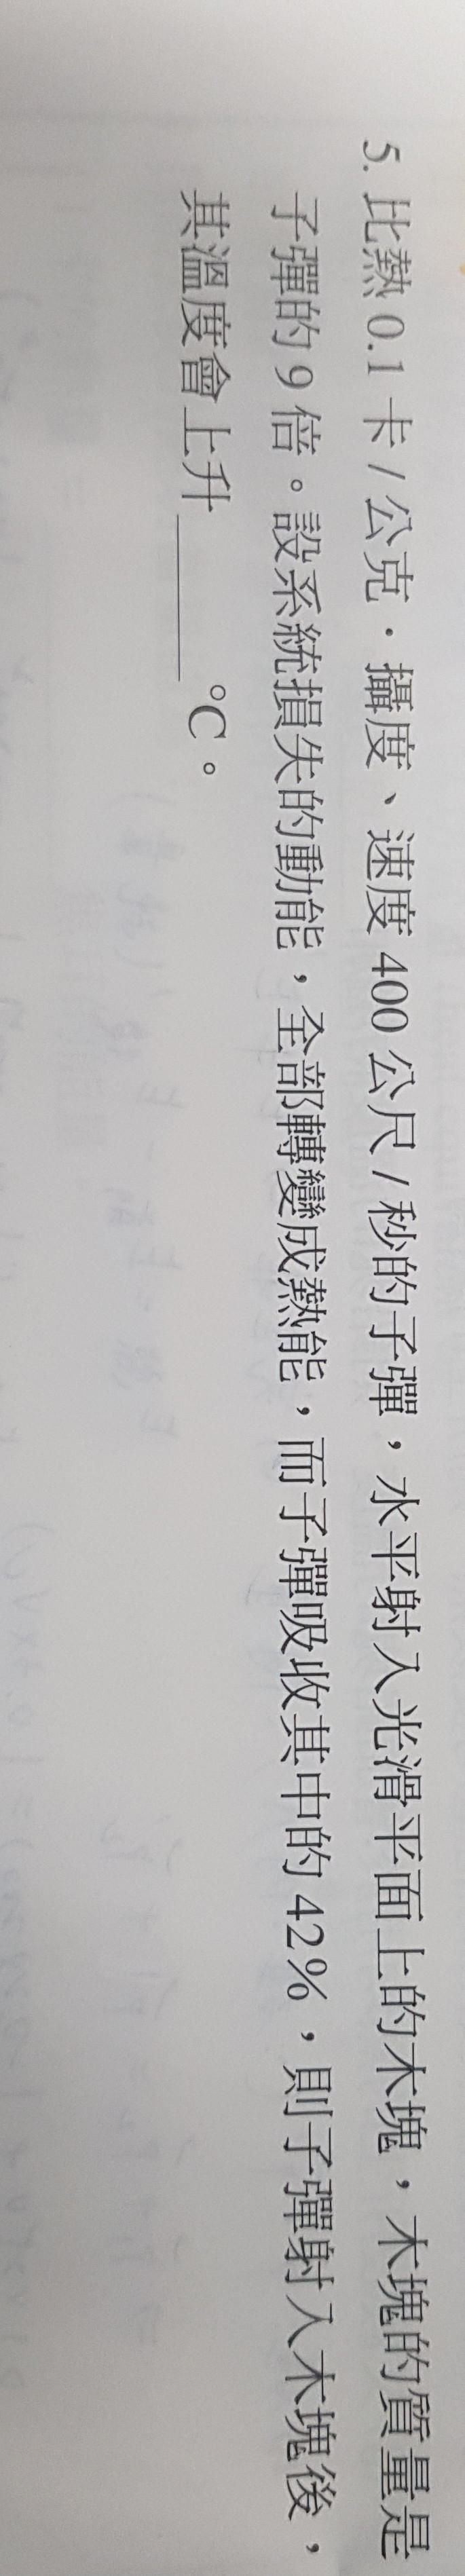 5. 比熱 0.1 卡 / 公克．攝度、速度 400 公尺 / 秒的子彈，水平射入光滑平面上的木塊，木塊的質量是
子彈的 9 倍。設系統損失的動能，全部轉變成熱能，而子彈吸收其中的 42%，則子彈射入木塊後，
其溫度會上升______℃。